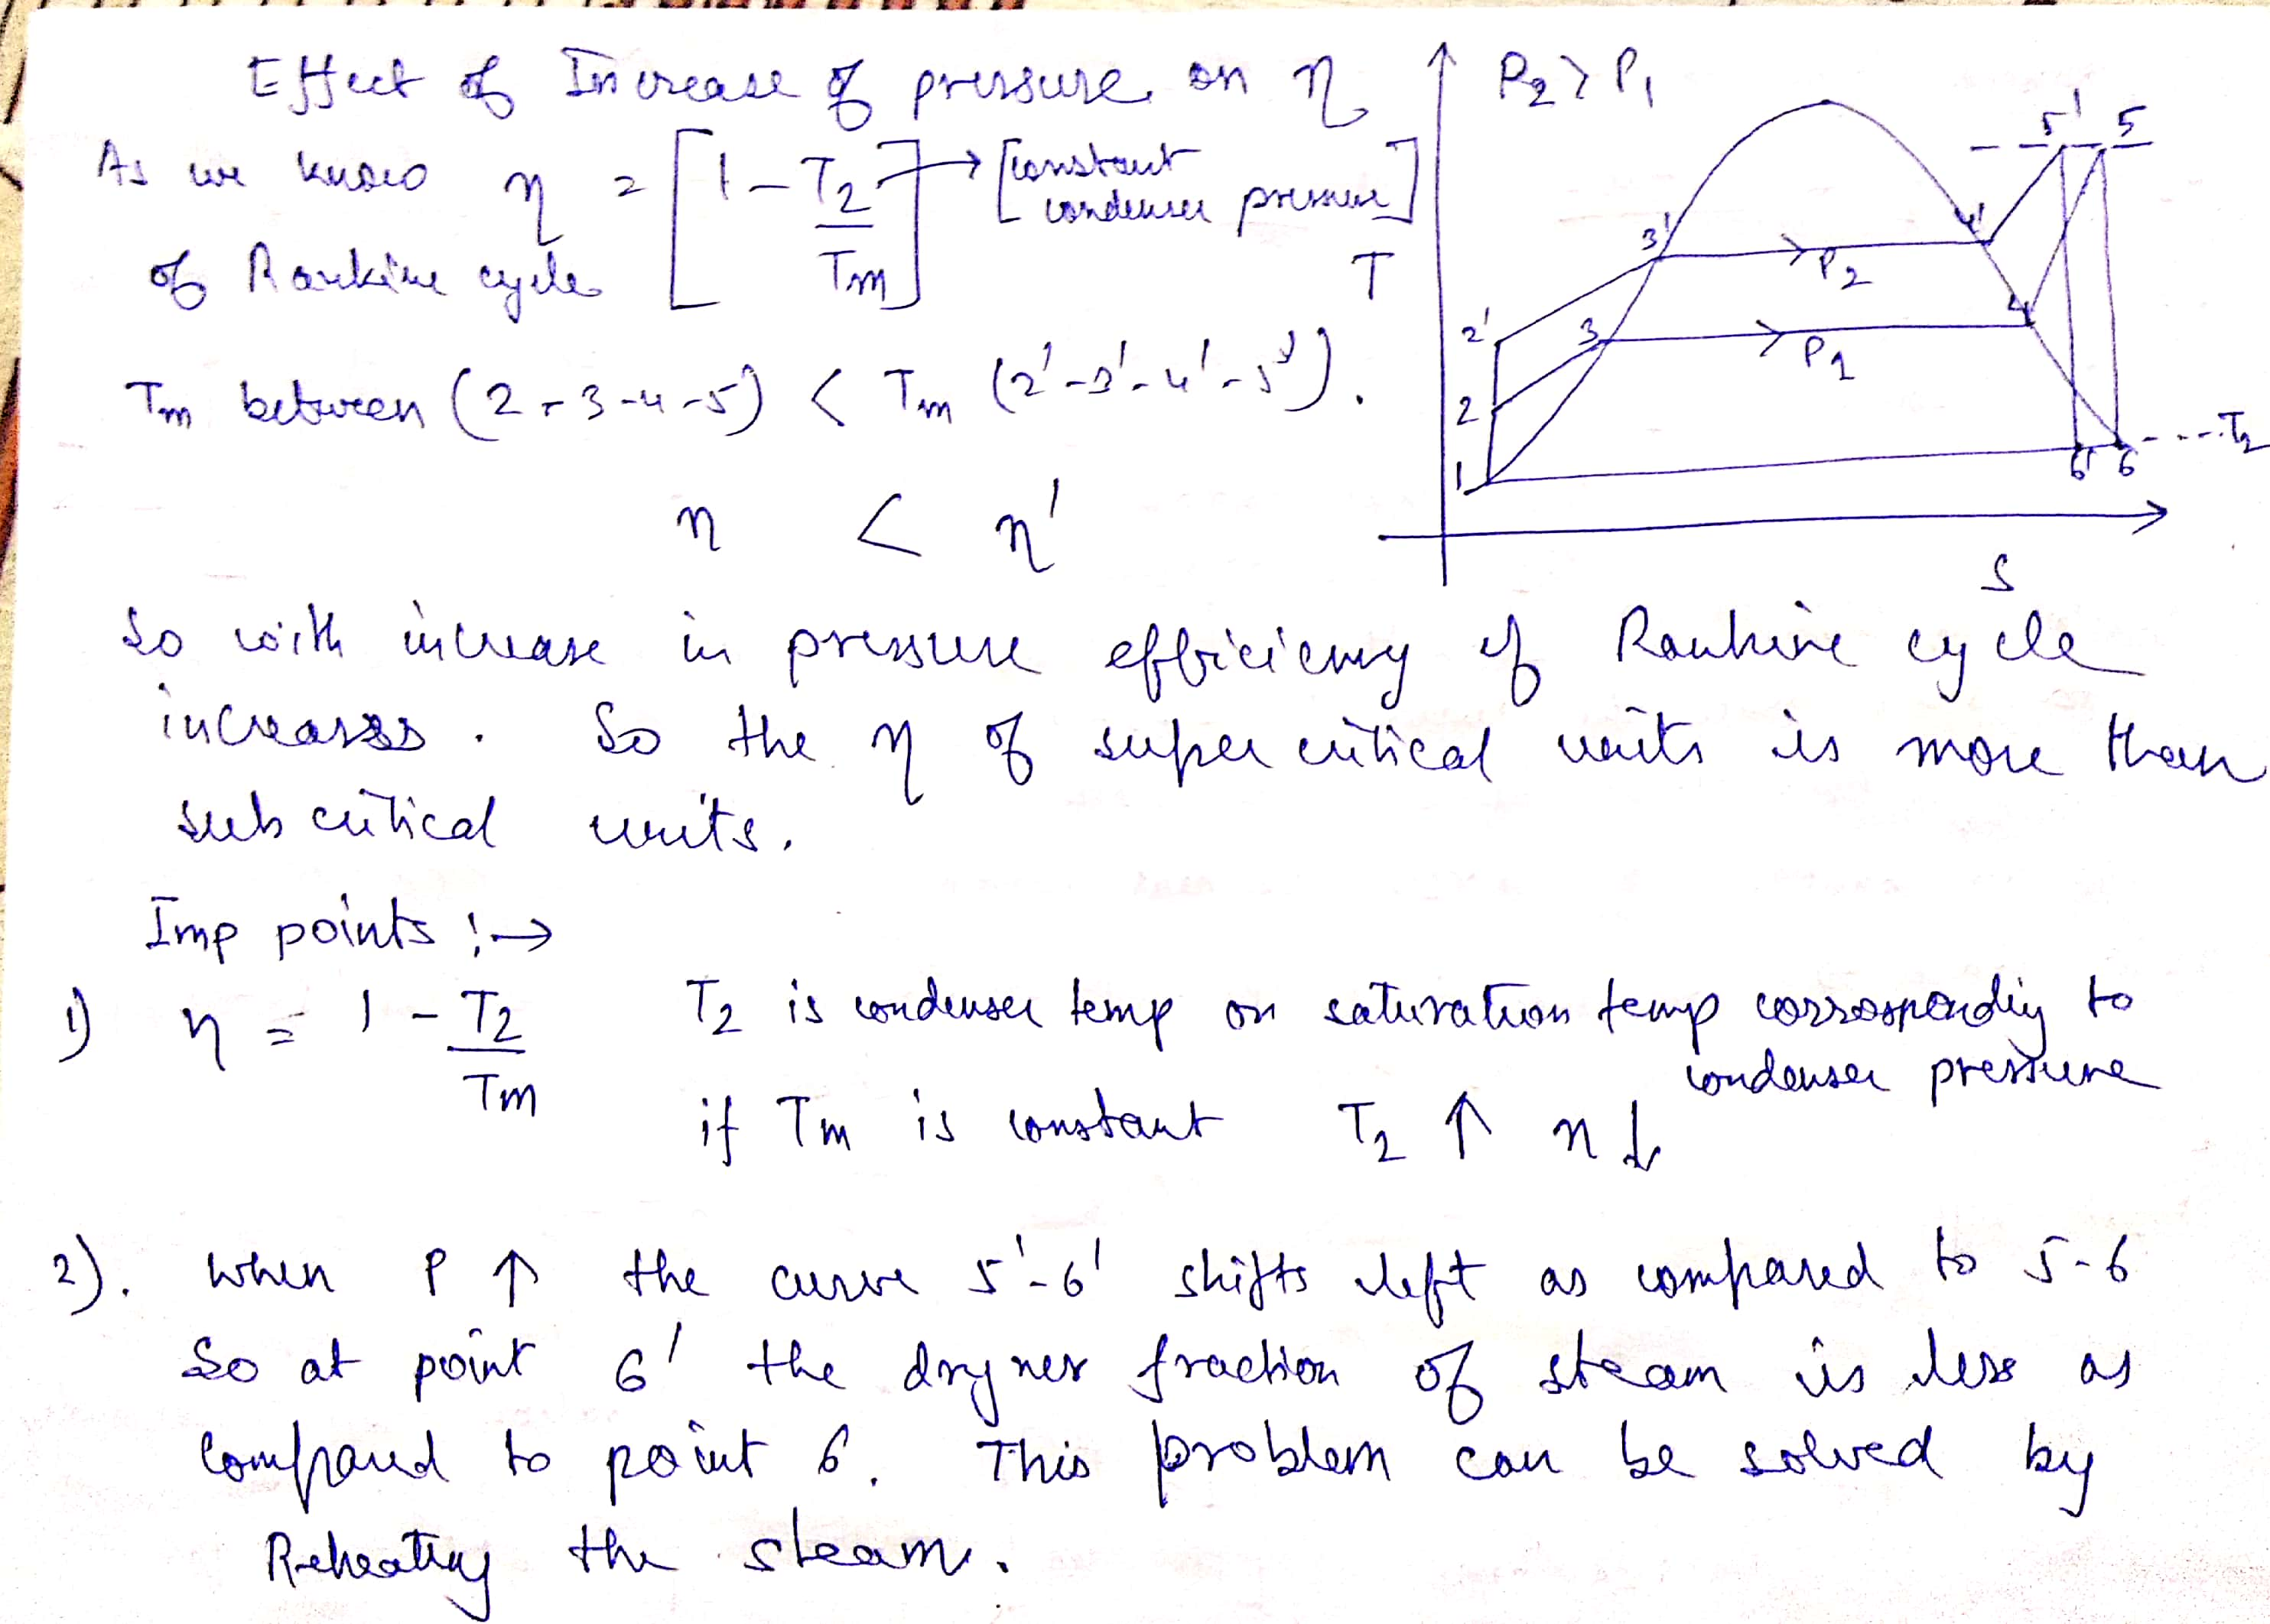 Effect of Increase of pressure on η
As we know η = [1 - T2/Tm] → [constant condenser pressure]
of Rankine cycle
Tm between (2-3-4-5) < Tm (2'-3'-4'-5').
η < η'
P2 > P1
T
S
1
2
2'
3
3'
4
4'
5'
5
6'
6
P2
P1
T2
So with increase in pressure efficiency of Rankine cycle
increases. So the η of super critical units is more than
sub critical units.
Imp points :→
1) η = 1 - T2/Tm T2 is condenser temp or saturation temp corrosponding to
condenser pressure
if Tm is constant T2 ↑ η ↓
2). When P ↑ the curve 5'-6' shifts left as compared to 5-6
So at point 6' the dryness fraction of steam is less as
compared to point 6. This problem can be solved by
Reheating the steam.